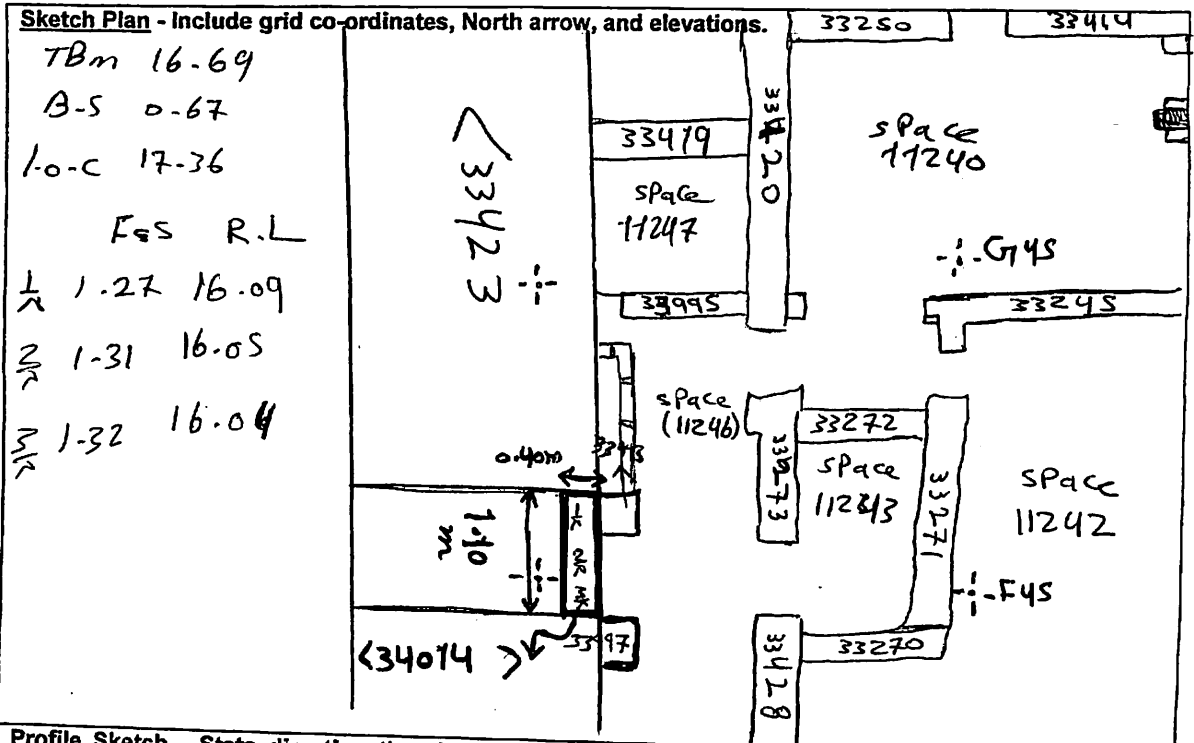 Sketch Plan - Include grid co-ordinates, North arrow, and elevations.
TBm 16-69
B-S 0-67
1-0-C 17-36
F&S R.L
1/R 1.27 16.09
2/R 1-31 16.05
3/R 1-32 16.04
<33423
33250
33414
33419
33420
space
11240
space
11247
G45
33995
33245
space
(11246)
33272
33273
space
11243
33271
space
11242
0.40m
1.10
m
F45
<34014 >
33997
33270
33428
Profile Sketch